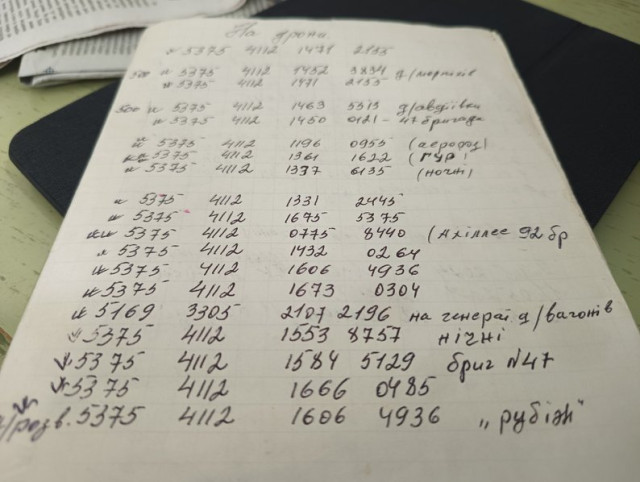 На дрони
5375 4112 1471 2135
500 5375 4112 1452 3834 д/морпіхів
5375 4112 1471 2135
500 5375 4112 1463 5515 д/авдіївки
5375 4112 1450 0121 - 47 бригада
5375 4112 1196 0955 (аерофо)
5375 4112 1361 1622 (ГУР)
5375 4112 1337 6135 (ночні)
5375 4112 1331 2445
5375 4112 1675 5375
5375 4112 0775 8440 (Ахіллес 92 бр
5375 4112 1432 0264
5375 4112 1606 4936
5375 4112 1673 0304
5169 3305 2107 2196 на генерат д/вагонів
5375 4112 1553 8757 нічні
5375 4112 1584 5129 бриг N47
5375 4112 1666 0485
д/розв. 5375 4112 1606 4936 „рубіж"